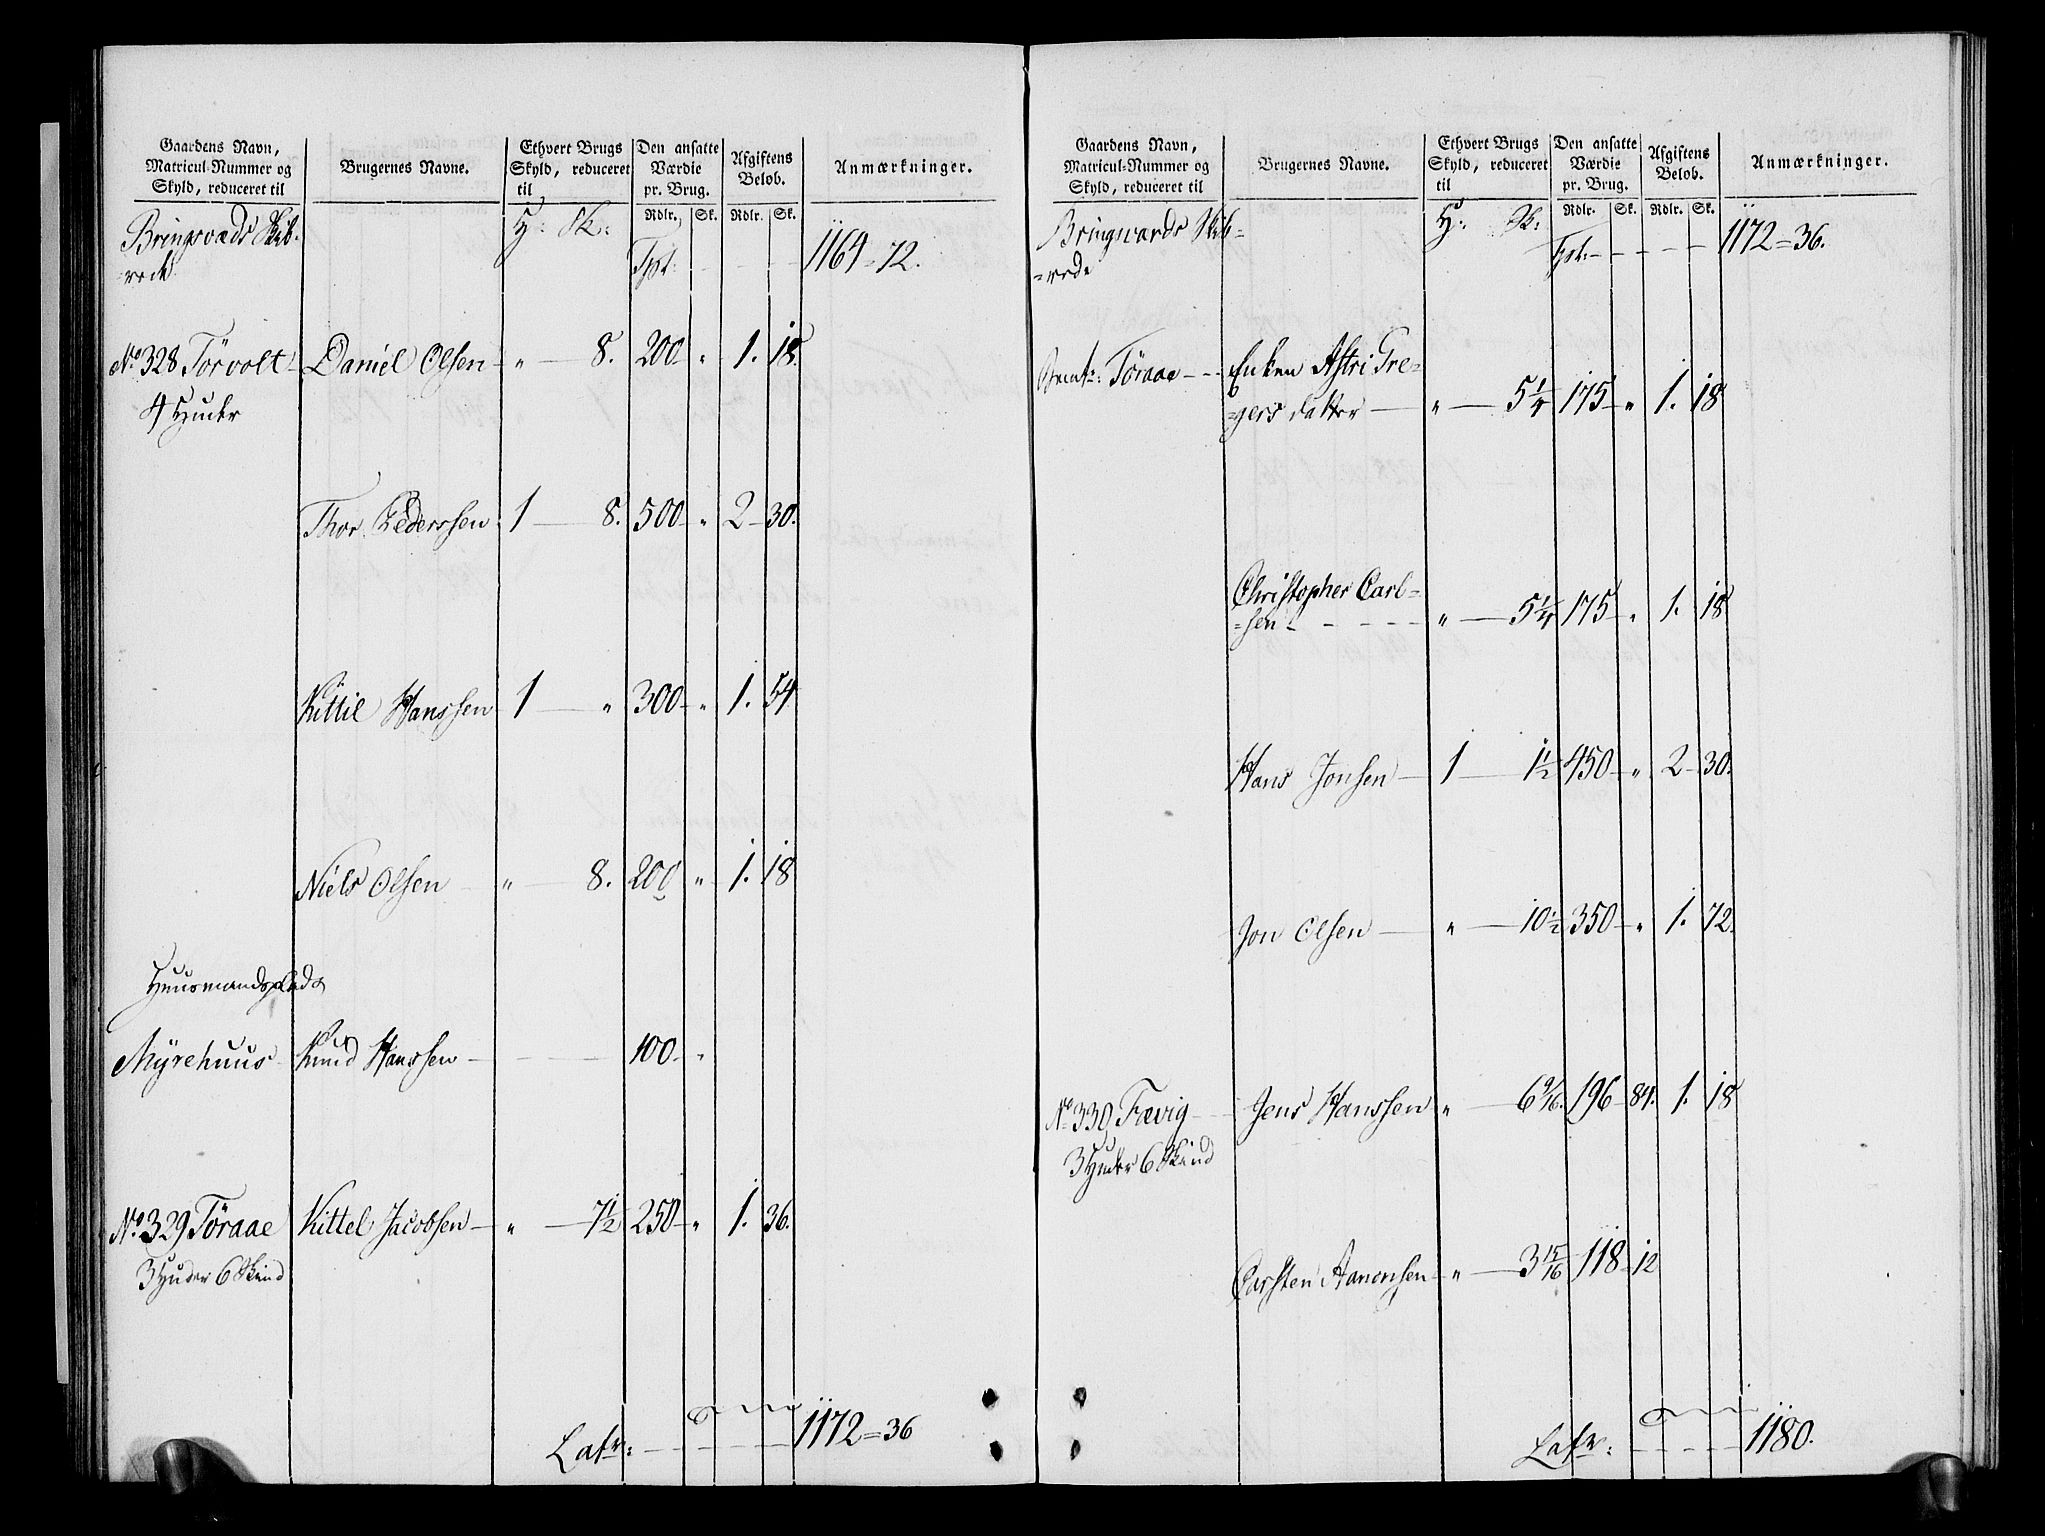 Gaardens Navn, Matricul-Nummer og Skyld, reduceret til
Brugernes Navne.
Ethvert Brugs Skyld, reduceret til
Den ansatte Værdie pr. Brug.
Afgiftens Beløb.
Anmærkninger.
Rdlr. Sk. Rdlr. Sk.
Bringsværds Skib-
=rede
H: Sk:
Tpt: - - - 1164=72.
No 328 Törvolt - Daniel Olsen - " - 8. 200 - " 1. 18.
4 Huder
Thor Pederssen 1 - 8. 500 - " 2 - 30.
Kittil Hanssen 1 - " 300 - " 1. 54
Niels Olsen - " - 8. 200 " 1. 18
Huusmandsplads
Myrehuus - Knud Hanssen - 100. "
No 329 Töraae Kittel Jacobsen - " - 7 1/2 250 - " 1. 36.
3 Huder 6 Skind
Latr: - - - 1172=36
Gaardens Navn, Matricul-Nummer og Skyld, reduceret til
Brugernes Navne.
Ethvert Brugs Skyld, reduceret til
Den ansatte Værdie pr. Brug.
Afgiftens Beløb.
Anmærkninger.
Rdlr. Sk. Rdlr. Sk.
Bringsværds Skib=
=rede
H: Sk:
Tpt: - - - 1172=36.
Töraae - - Enken Astri Gre=
=gers datter - " - 5 1/4 175 - " 1. 18
Christopher Carl=
=sen - - - " - 5 1/4 175 - " 1. 18
Hans Jonsen - 1 - 1 1/2 450 - " 2 - 30.
Jon Olsen - " - 10 1/2 350 - " 1. 72.
No 330 Fævig - Jens Hanssen " - 6 9/16. 196 - 84. 1. 18
3 Huder 6 Skind
Carsten Aanonsen - " - 3 15/16 118 - 12
Latr: - - - 1180.